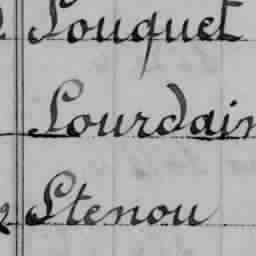 Souquet
Sourdain
Stenou